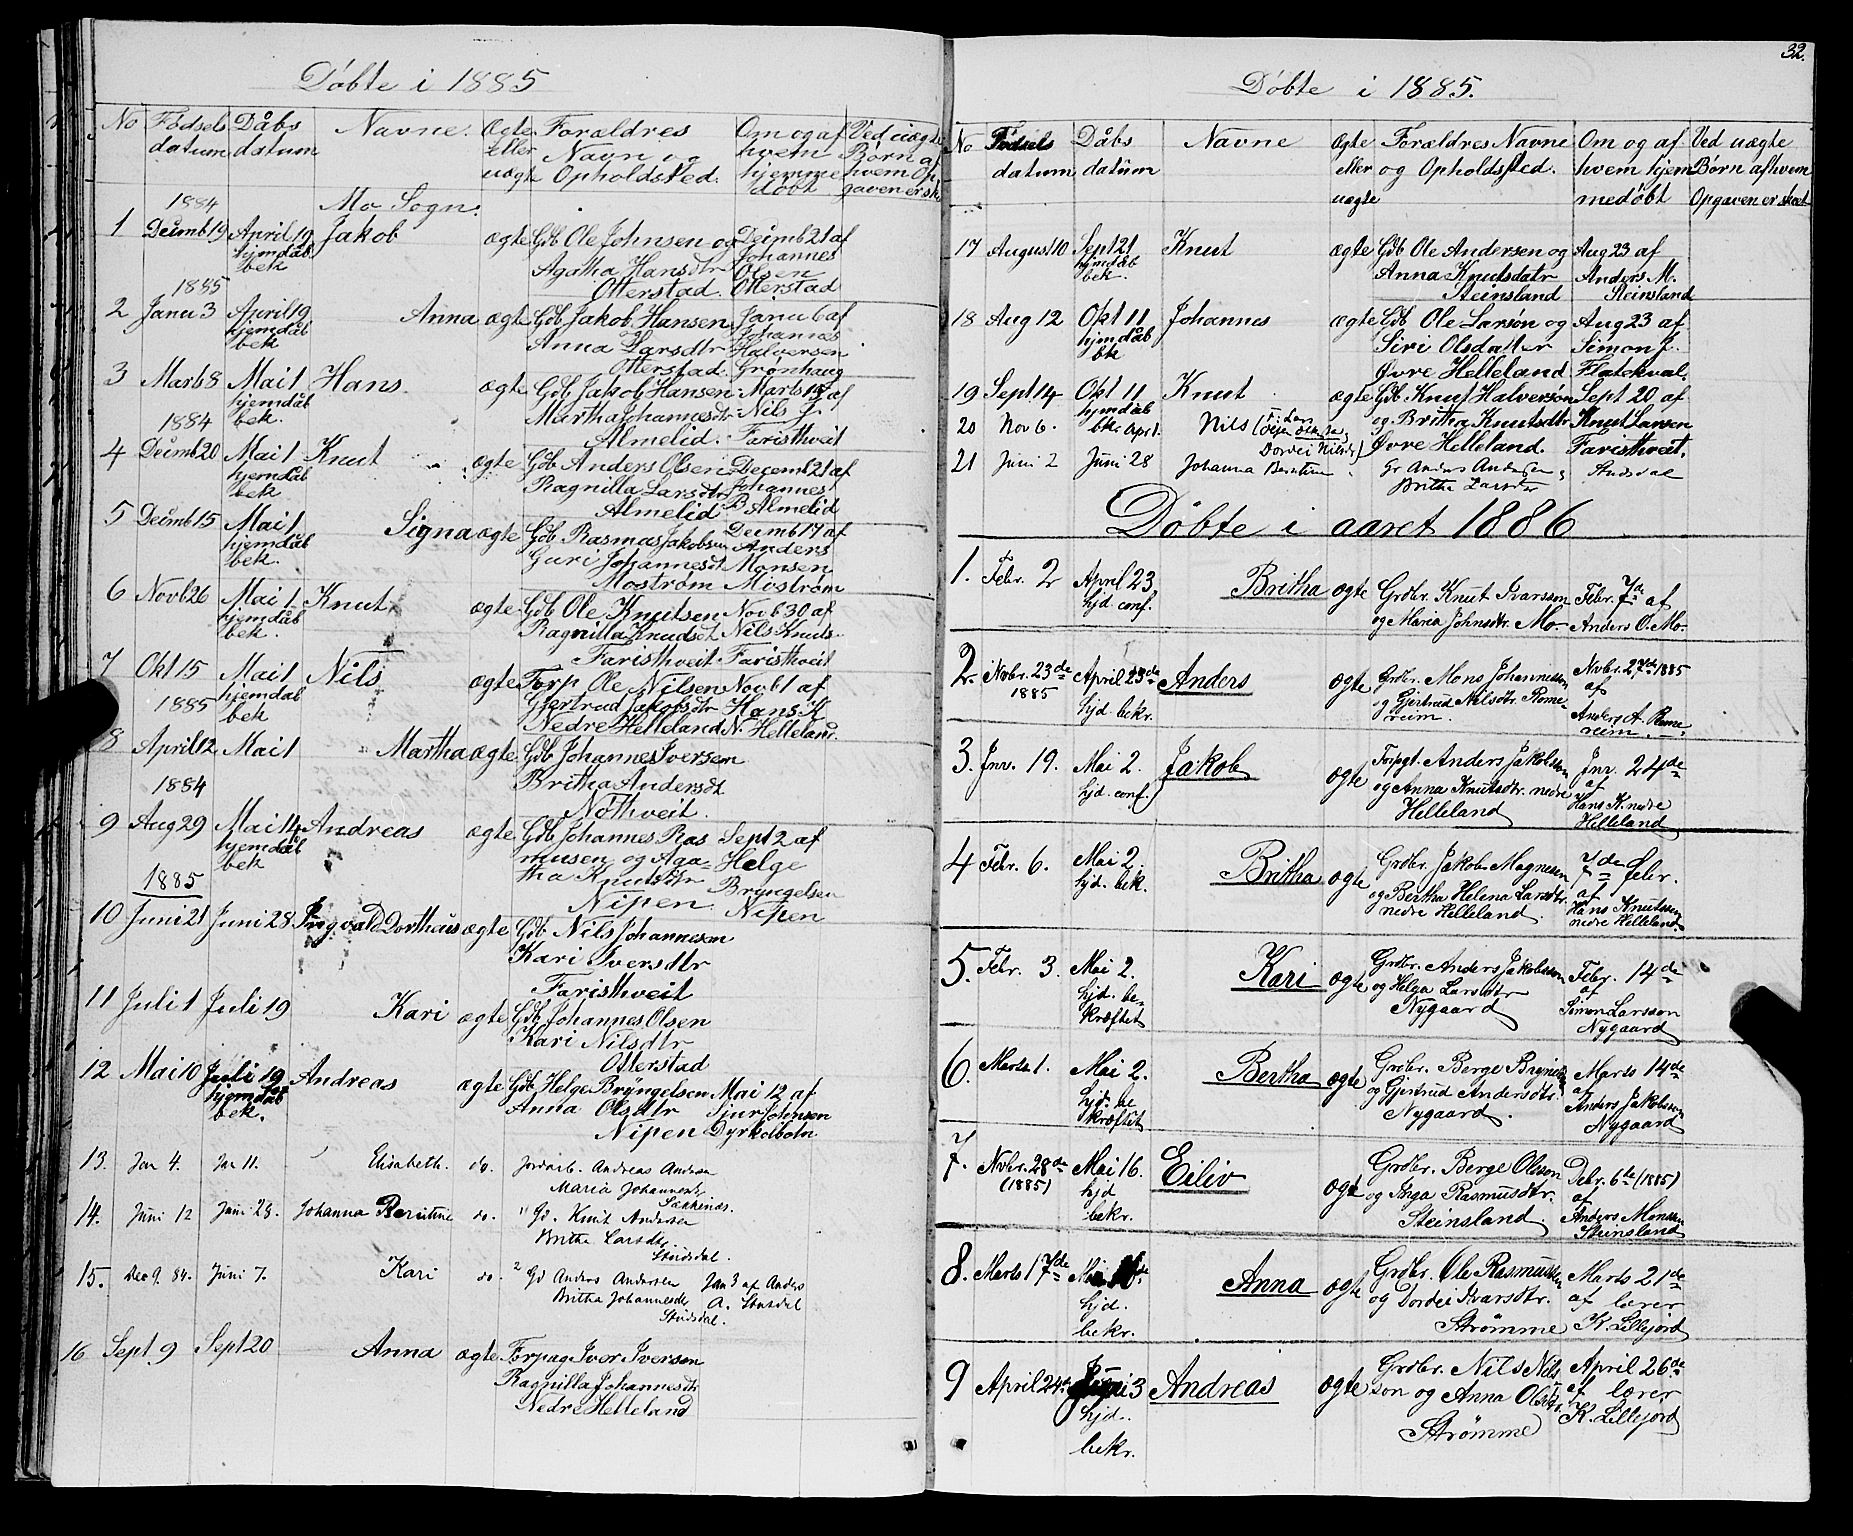 Døbte i 1885
No Fødsels datum Dåbs datum Navne. Ægte eller uægte Foraldres Navn og Opholdsted. Om og af hvem hjemme døbt Ved uægte Børn af hvem Opgaven er sk
1884 Mo Sogn.
1 Deimb 19 April 19 Jakob ægte Gdb Ole Johnsen og Deimb 21 af
hjemdåb Agatha Hansdtr Johannes Olsen
bek Otterstad. Otterstad
1885
2 Janu 3 April 19 Anna ægte Gdb Jakob Hansen Janu 6 af
hjemdåb Anna Larsdtr Johannes Halversen
bek Otterstad Grønhaug
3 Marts 8 Mai 1 Hans. ægte Gdb Jakob Hansen Marts 15 af
hjemdåb Martha Johannesdtr Nils J.
bek. Almelid. Faristhveit
1884
4 Deimb 20 Mai 1 Knut ægte Gdb Anders Olsen Decemb 21 af
hjemdåb Ragnilla Larsdtr Johannes
bek Almelid B Almelid
5 Deimb 15 Mai 1 Signa ægte Gdb Rasmus Jakobsen Deimb 17 af
hjemdåb Guri Johannesdt Anders Monsen
bek. Mostrøm Mostrøm
6 Novb 26 Mai 1 Knut ægte Gdb Ole Knutsen Novb 30 af
hjemdåb Ragnilla Knudsdt Nils Knuts.
bek. Faristhveit Faristhveit
7 Okt 15 Mai 1 Nils ægte Torp Ole Nilsen Novb 1 af
hjemdåb Gjertrud Jakobsdtr Hans K
1885 bek Nedre Helleland N. Helleland.
8 April 12 Mai 1 Martha ægte Gdb Johannes Iversen
Britha Andersdt
1884 Nothveit.
9 Aug 29 Mai 14 Andreas ægte Gdb Johannes Ras Sept 2 af
hjemdåb musen og Aga= Helge
bek tha Knutsdtr Bryngelsen
1885 Nipen. Nipen
10 Juni 21 Juni 28 Ingvald Dorthæus ægte Gdb Nils Johannesen
Kari Iversdtr
Faristhveit
11 Juli 1 Juli 19 Kari ægte Gdb Johannes Olsen
Kari Nilsdtr
Otterstad
12 Mai 10 Juli 19 Andreas ægte Gdb Helge Bryngelsen Mai 12 af
hjemdåb Anna Olsdtr Sjur Johnsen
bek. Nipen Dyrkolbotn
13. Jan 4. Jan 11. Elisabeth. do. Andreas Andersen
Maria Johannesdtr
14. Juni 12 Juni 28. Johanna Berntine do. Gd. Knut Andersen
Britha Larsdtr
Stusdal.
15. Dec 9. 84. Juni 7. Kari do. Gd Anders Andersen Jan 3 af Anders
Britha Johannesdtr A. Stusdal
Stusdal.
16 Sept 9 Sept 20 Anna ægte Torpag Iver Iversen
Ragnilla Johannesdtr
Nedre Helleland
32.
Døbte i 1885.
No Fødsels datum Dåbs datum Navne Ægte eller uægte Foraldres Navne og Opholdsted. Om og af hvem hjemmedøbt Ved uægte Børn af hvem Opgaven er sket
17 August 10 Sept 21 Knut ægte Gdb Ole Andersen og Aug 23 af
hjemdåb Anna Knutsdatr Anders M.
bek. Steinsland Steinsland
18 Aug 12 Okt 11 Johannes ægte Gdb Ole Larsøn og Aug 23 af
hjemdåb Siri Olsdatter Simon J.
bk Øvre Helleland Flatekval.
19 Sept 14 Okt 11 Knut ægte Gdb Knut Halversøn Sept 20 af
hjemdåb og Britha Knutsdtr Knut Larsen
bk. Øvre Helleland. Faristhveit.
20 Nov 6. Apr 1. Nils
Dordei Nilsdtr)
21 Juni 2 Juni 28 Johanna Berntine Gr Anders Andersen Stusdal
Britha Larsdtr
Døbte i aaret 1886
1. Febr. 2 April 23 Britha ægte Grdbr. Knut Ivarsson Febr. 7de af
hjd. conf. og Maria Johnsdtr. Mo. Anders O. Mo.
2. Nvbr. 23de April 23de Anders ægte Grdbr. Mons Johannessen Nvbr. 27de 1885
1885 hjd. bekr. og Gjertrud Nilsdtr. Rome- af
reim. Anders A. Rome
reim.
3. Jnr. 19. Mai 2. Jakob ægte Torpgt. Anders Jakobsson Jnr. 24de
hjd. conf. og Anna Knutsdtr. nedre af Hans K. nedre
Helleland Helleland
4 Febr. 6. Mai 2. Britha ægte Grdbr. Jakob Magnesen 7de febr.
hjd. bek. og Bertha Helena Larsdtr. af Hans Knutssen
nedre Helleland. nedre Helleland.
5. Febr. 3. Mai 2. Kari ægte Grdbr. Anders Jakobsson Febr. 14de
hjd. be- og Helga Larsdtr af Simon Larsson
kræftet Nygaard Nygaard
6. Marts 1. Mai 2. Bertha ægte Grdbr. Berge Brynils Marts 14de
hjd. be og Gjertrud Andersdtr. af Anders Jakobsson
kræftet Nygaard. Nygaard
7. Nvbr. 28de Mai 16. Eiliv ægte Grdbr. Berge Olsson Debr. 6te (1885)
(1885) hjd og Inga Rasmusdtr. af Anders Monssen
bekr. Steinsland. Steinsland
8. Marts 17de Anna ægte Grdbr. Ole Rasmussen Marts 21de
hjd. og Dordei Ivarsdtr. af lærer
bekr. Strømme K. Lillejord
9 April 24de Juni 3 Andreas ægte Grdbr. Nils Nils April 26de
hjd. son og Anna Olsdtr. af lærer
bekr. Strømme K. Lillejord